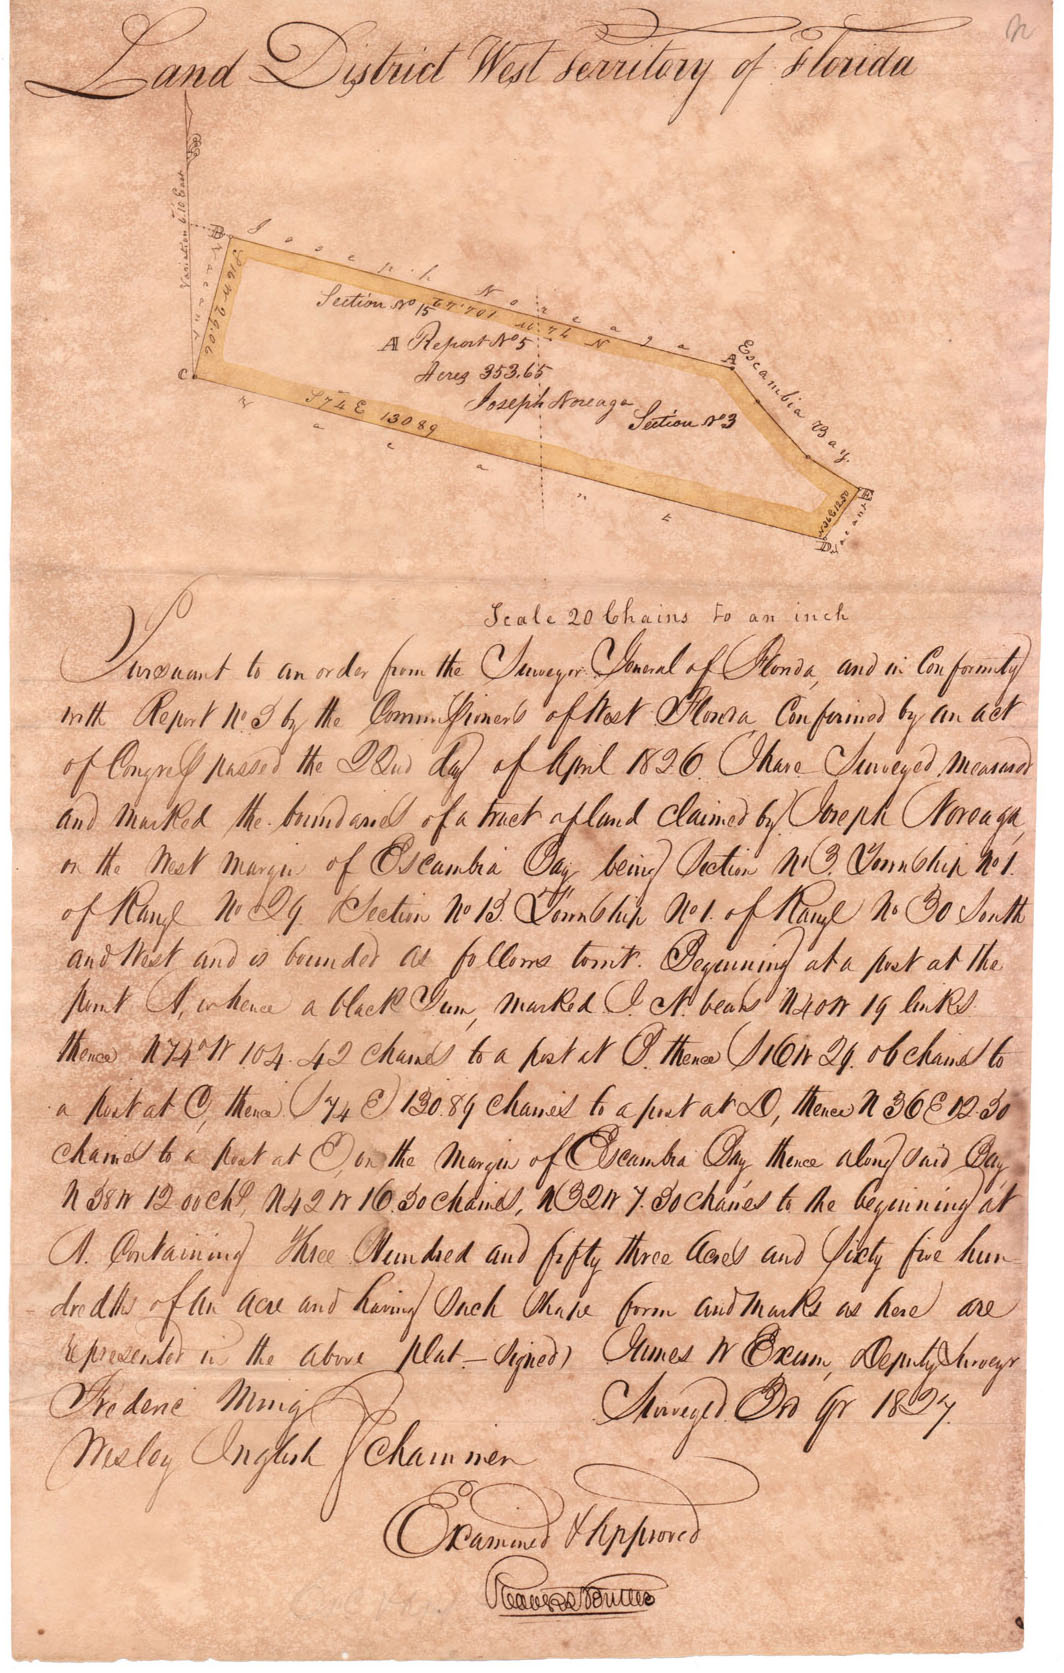 Land District West Territory of Florida
Variation 6.10 East
B
Vacant
S 16 W 29.06
Joseph Noreaga
Section No 15
N 74 W
A Report No 5
Acres 353.65
Joseph Noreaga
Section No 3
A
Escambia Bay.
C
S 74 E 130 89
Vacant
N 36 E 12.50
E
Vacant
D
Scale 20 Chains to an inch
Pursuant to an order from the Surveyor General of Florida, and in Conformity
with Report No 5 by the Commissioners of West Florida Confirmed by an act
of Congress passed the 22nd day of April 1826. I have Surveyed, measured
and marked the boundaries of a tract of land claimed by Joseph Noreaga,
on the West margin of Escambia Bay being Section No 3. Township No 1.
of Range No 29 Section No 15. Township No 1. of Range No 30 South
and West and is bounded as follows towit. Beginning at a post at the
point A, whence a black Gum, marked J. N. bears N 40 W 19 links
thence N 74° W 104.42 chains to a post at B. thence S 16 W 29.06 chains to
a post at C, thence S 74 E 130.89 chains to a post at D, thence N 36 E 12.50
chains to a post at E, on the margin of Escambia Bay thence along said Bay,
N 58 W 12 00 chs, N 42 W 16.50 chains, N 32 W 7.50 chains to the beginning at
A. Containing Three Hundred and fifty three Acres and Sixty five hun
dredths of an acre and having Such shape form and marks as here are
represented in the above plat.— Signed) James W Exum, Deputy Surveyr
Frederic Ming
Surveyed 1827.
Wesley English } Chainmen
Examined & Approved
Butler